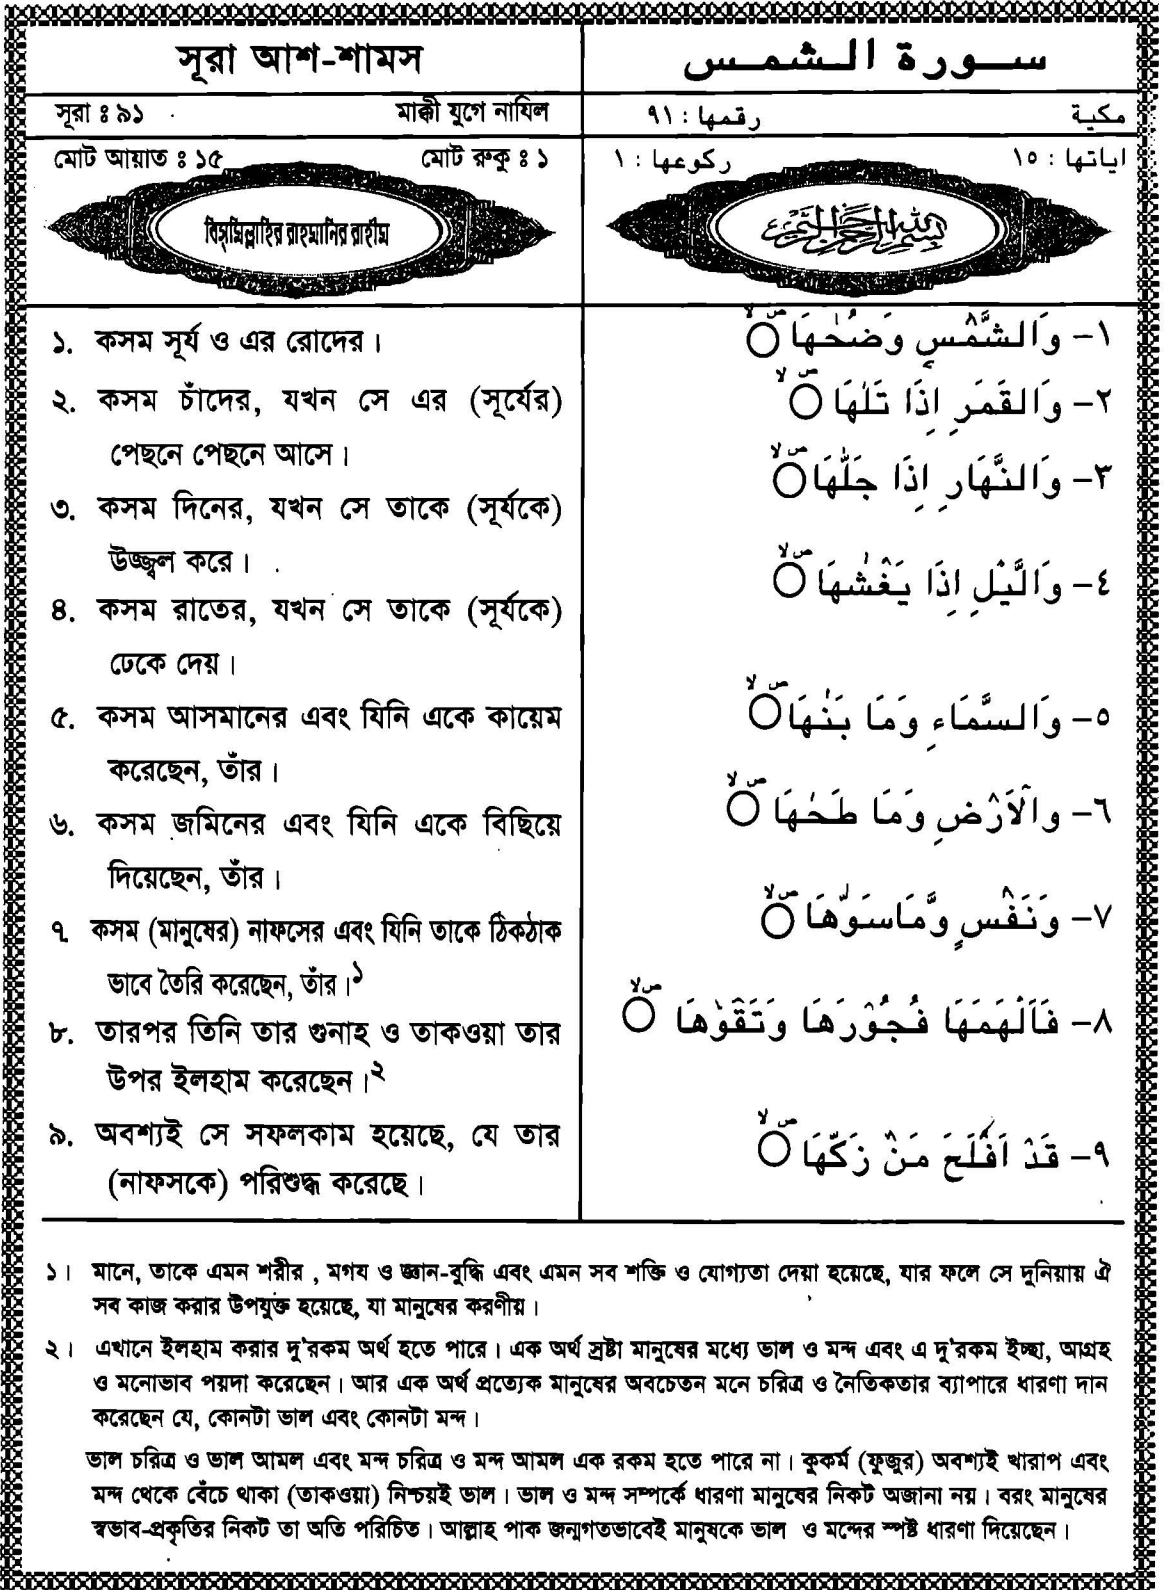 সূরা আশ-শামস
সূরা ঃ ৯১ মাক্কী যুগে নাযিল
মোট আয়াত ঃ ১৫ মোট রুকু ঃ ১
বিসমিল্লাহির রাহমানির রাহীম
১. কসম সূর্য ও এর রোদের।
২. কসম চাঁদের, যখন সে এর (সূর্যের)
পেছনে পেছনে আসে।
৩. কসম দিনের, যখন সে তাকে (সূর্যকে)
উজ্জ্বল করে।
৪. কসম রাতের, যখন সে তাকে (সূর্যকে)
ঢেকে দেয়।
৫. কসম আসমানের এবং যিনি একে কায়েম
করেছেন, তাঁর।
৬. কসম জমিনের এবং যিনি একে বিছিয়ে
দিয়েছেন, তাঁর।
৭. কসম (মানুষের) নাফসের এবং যিনি তাকে ঠিকঠাক
ভাবে তৈরি করেছেন, তাঁর।১
৮. তারপর তিনি তার গুনাহ ও তাকওয়া তার
উপর ইলহাম করেছেন।২
৯. অবশ্যই সে সফলকাম হয়েছে, যে তার
(নাফসকে) পরিশুদ্ধ করেছে।
سورة الشمس
مكية رقمها : ٩١
اياتها : ١٥ ركوعها : ١
بسم الله الرحمن الرحيم
١- وَالشَّمْسِ وَضُحٰهَا ۝
٢- وَالقَمَرِ اِذَا تَلٰهَا ۝
٣- وَالنَّهَارِ اِذَا جَلّٰهَا ۝
٤- وَالَّيْلِ اِذَا يَغْشٰهَا ۝
٥- وَالسَّمَاءِ وَمَا بَنٰهَا ۝
٦- والْاَرْضِ وَمَا طَحٰهَا ۝
٧- وَنَفْسٍ وَّمَاسَوّٰهَا ۝
٨- فَاَلْهَمَهَا فُجُوْرَهَا وَتَقْوٰهَا ۝
٩- قَدْ اَفْلَحَ مَنْ زَكّٰهَا ۝
১। মানে, তাকে এমন শরীর , মগয ও জ্ঞান-বুদ্ধি এবং এমন সব শক্তি ও যোগ্যতা দেয়া হয়েছে, যার ফলে সে দুনিয়ায় ঐ
সব কাজ করার উপযুক্ত হয়েছে, যা মানুষের করণীয়।
২। এখানে ইলহাম করার দু'রকম অর্থ হতে পারে। এক অর্থ স্রষ্টা মানুষের মধ্যে ভাল ও মন্দ এবং এ দু'রকম ইচ্ছা, আগ্রহ
ও মনোভাব পয়দা করেছেন। আর এক অর্থ প্রত্যেক মানুষের অবচেতন মনে চরিত্র ও নৈতিকতার ব্যাপারে ধারণা দান
করেছেন যে, কোনটা ভাল এবং কোনটা মন্দ।
ভাল চরিত্র ও ভাল আমল এবং মন্দ চরিত্র ও মন্দ আমল এক রকম হতে পারে না। কুকর্ম (ফুজুর) অবশ্যই খারাপ এবং
মন্দ থেকে বেঁচে থাকা (তাকওয়া) নিশ্চয়ই ভাল। ভাল ও মন্দ সম্পর্কে ধারণা মানুষের নিকট অজানা নয়। বরং মানুষের
স্বভাব-প্রকৃতির নিকট তা অতি পরিচিত। আল্লাহ পাক জন্মগতভাবেই মানুষকে ভাল ও মন্দের স্পষ্ট ধারণা দিয়েছেন।